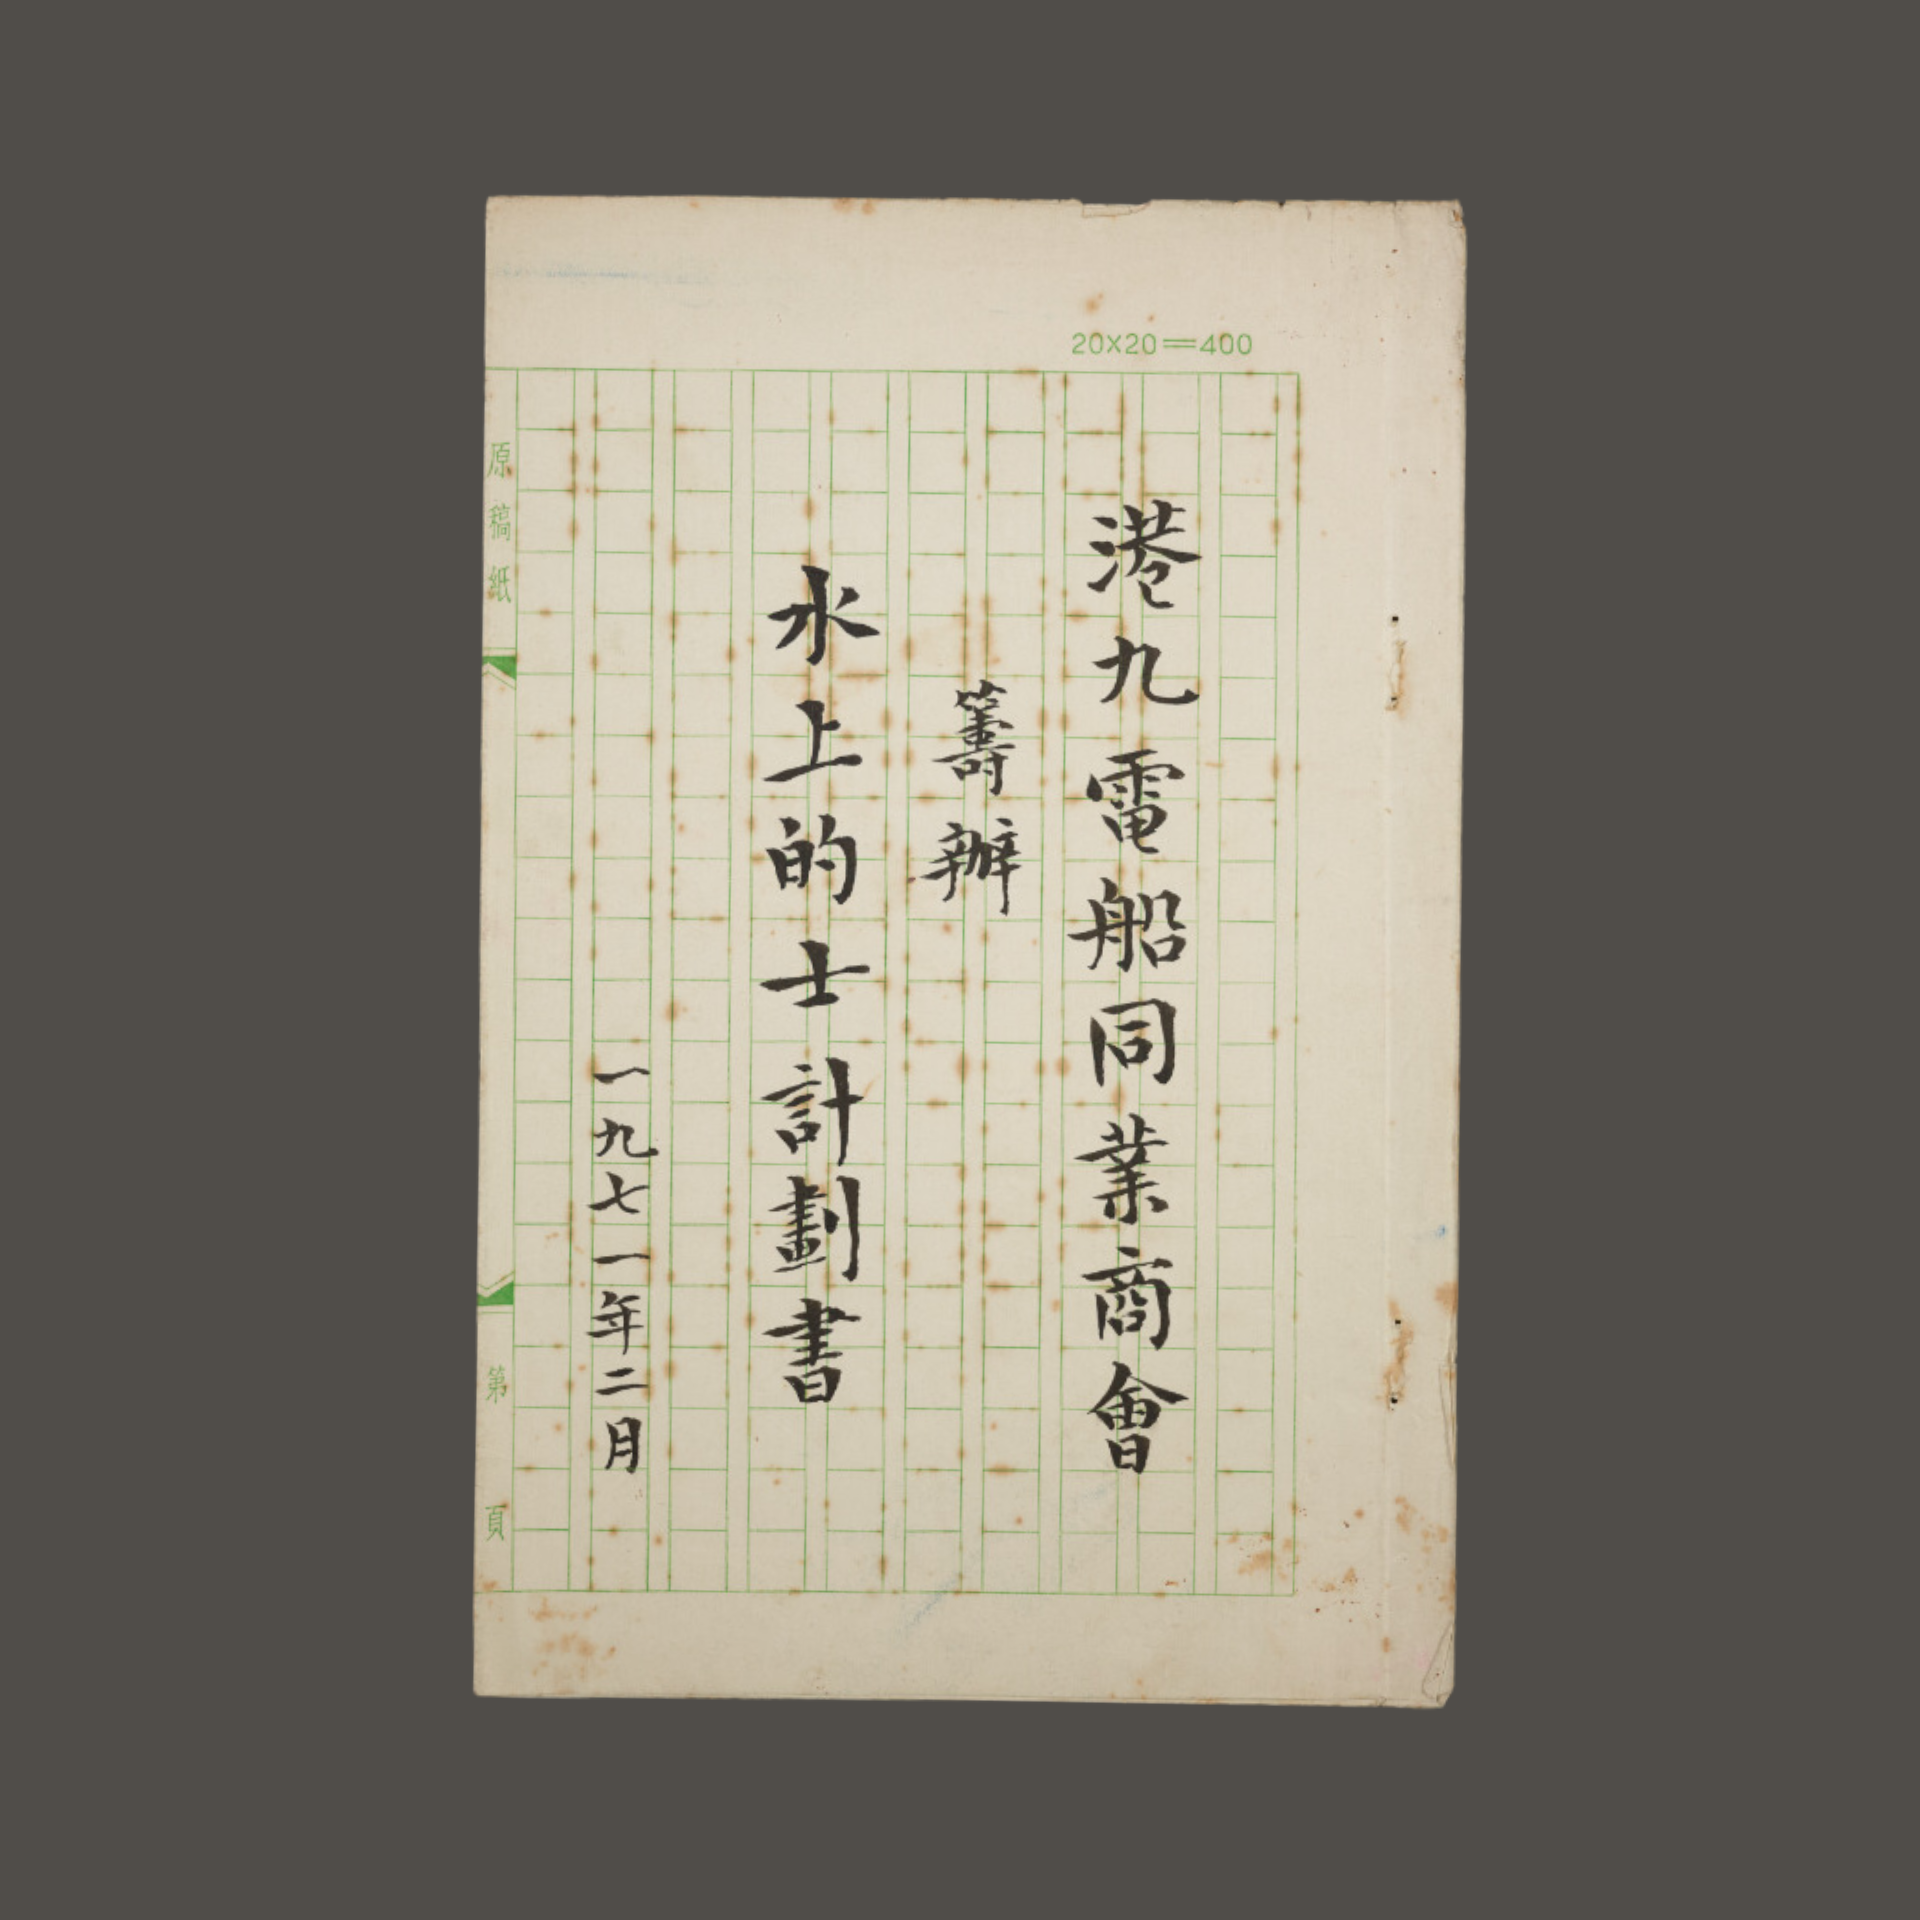 20X20=400
港九電船同業商會
籌辦
水上的士計劃書
一九七一年二月
原稿紙
第 頁